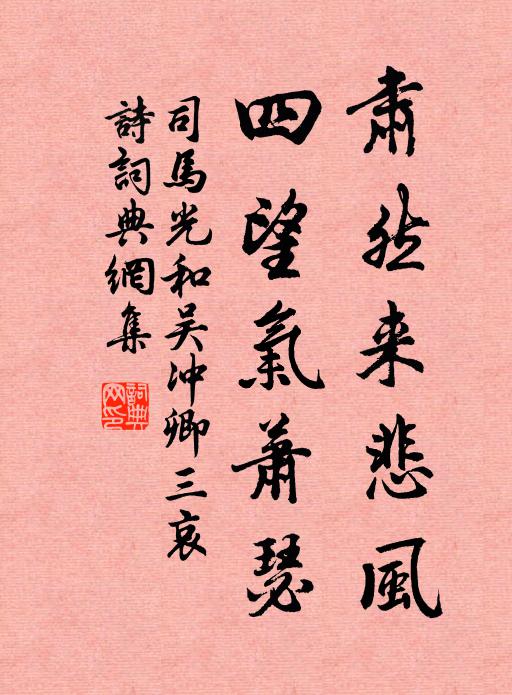 肅然来悲風
四望氣蕭瑟
司馬光和吴冲卿三哀
詩詞典網集
詞典網印